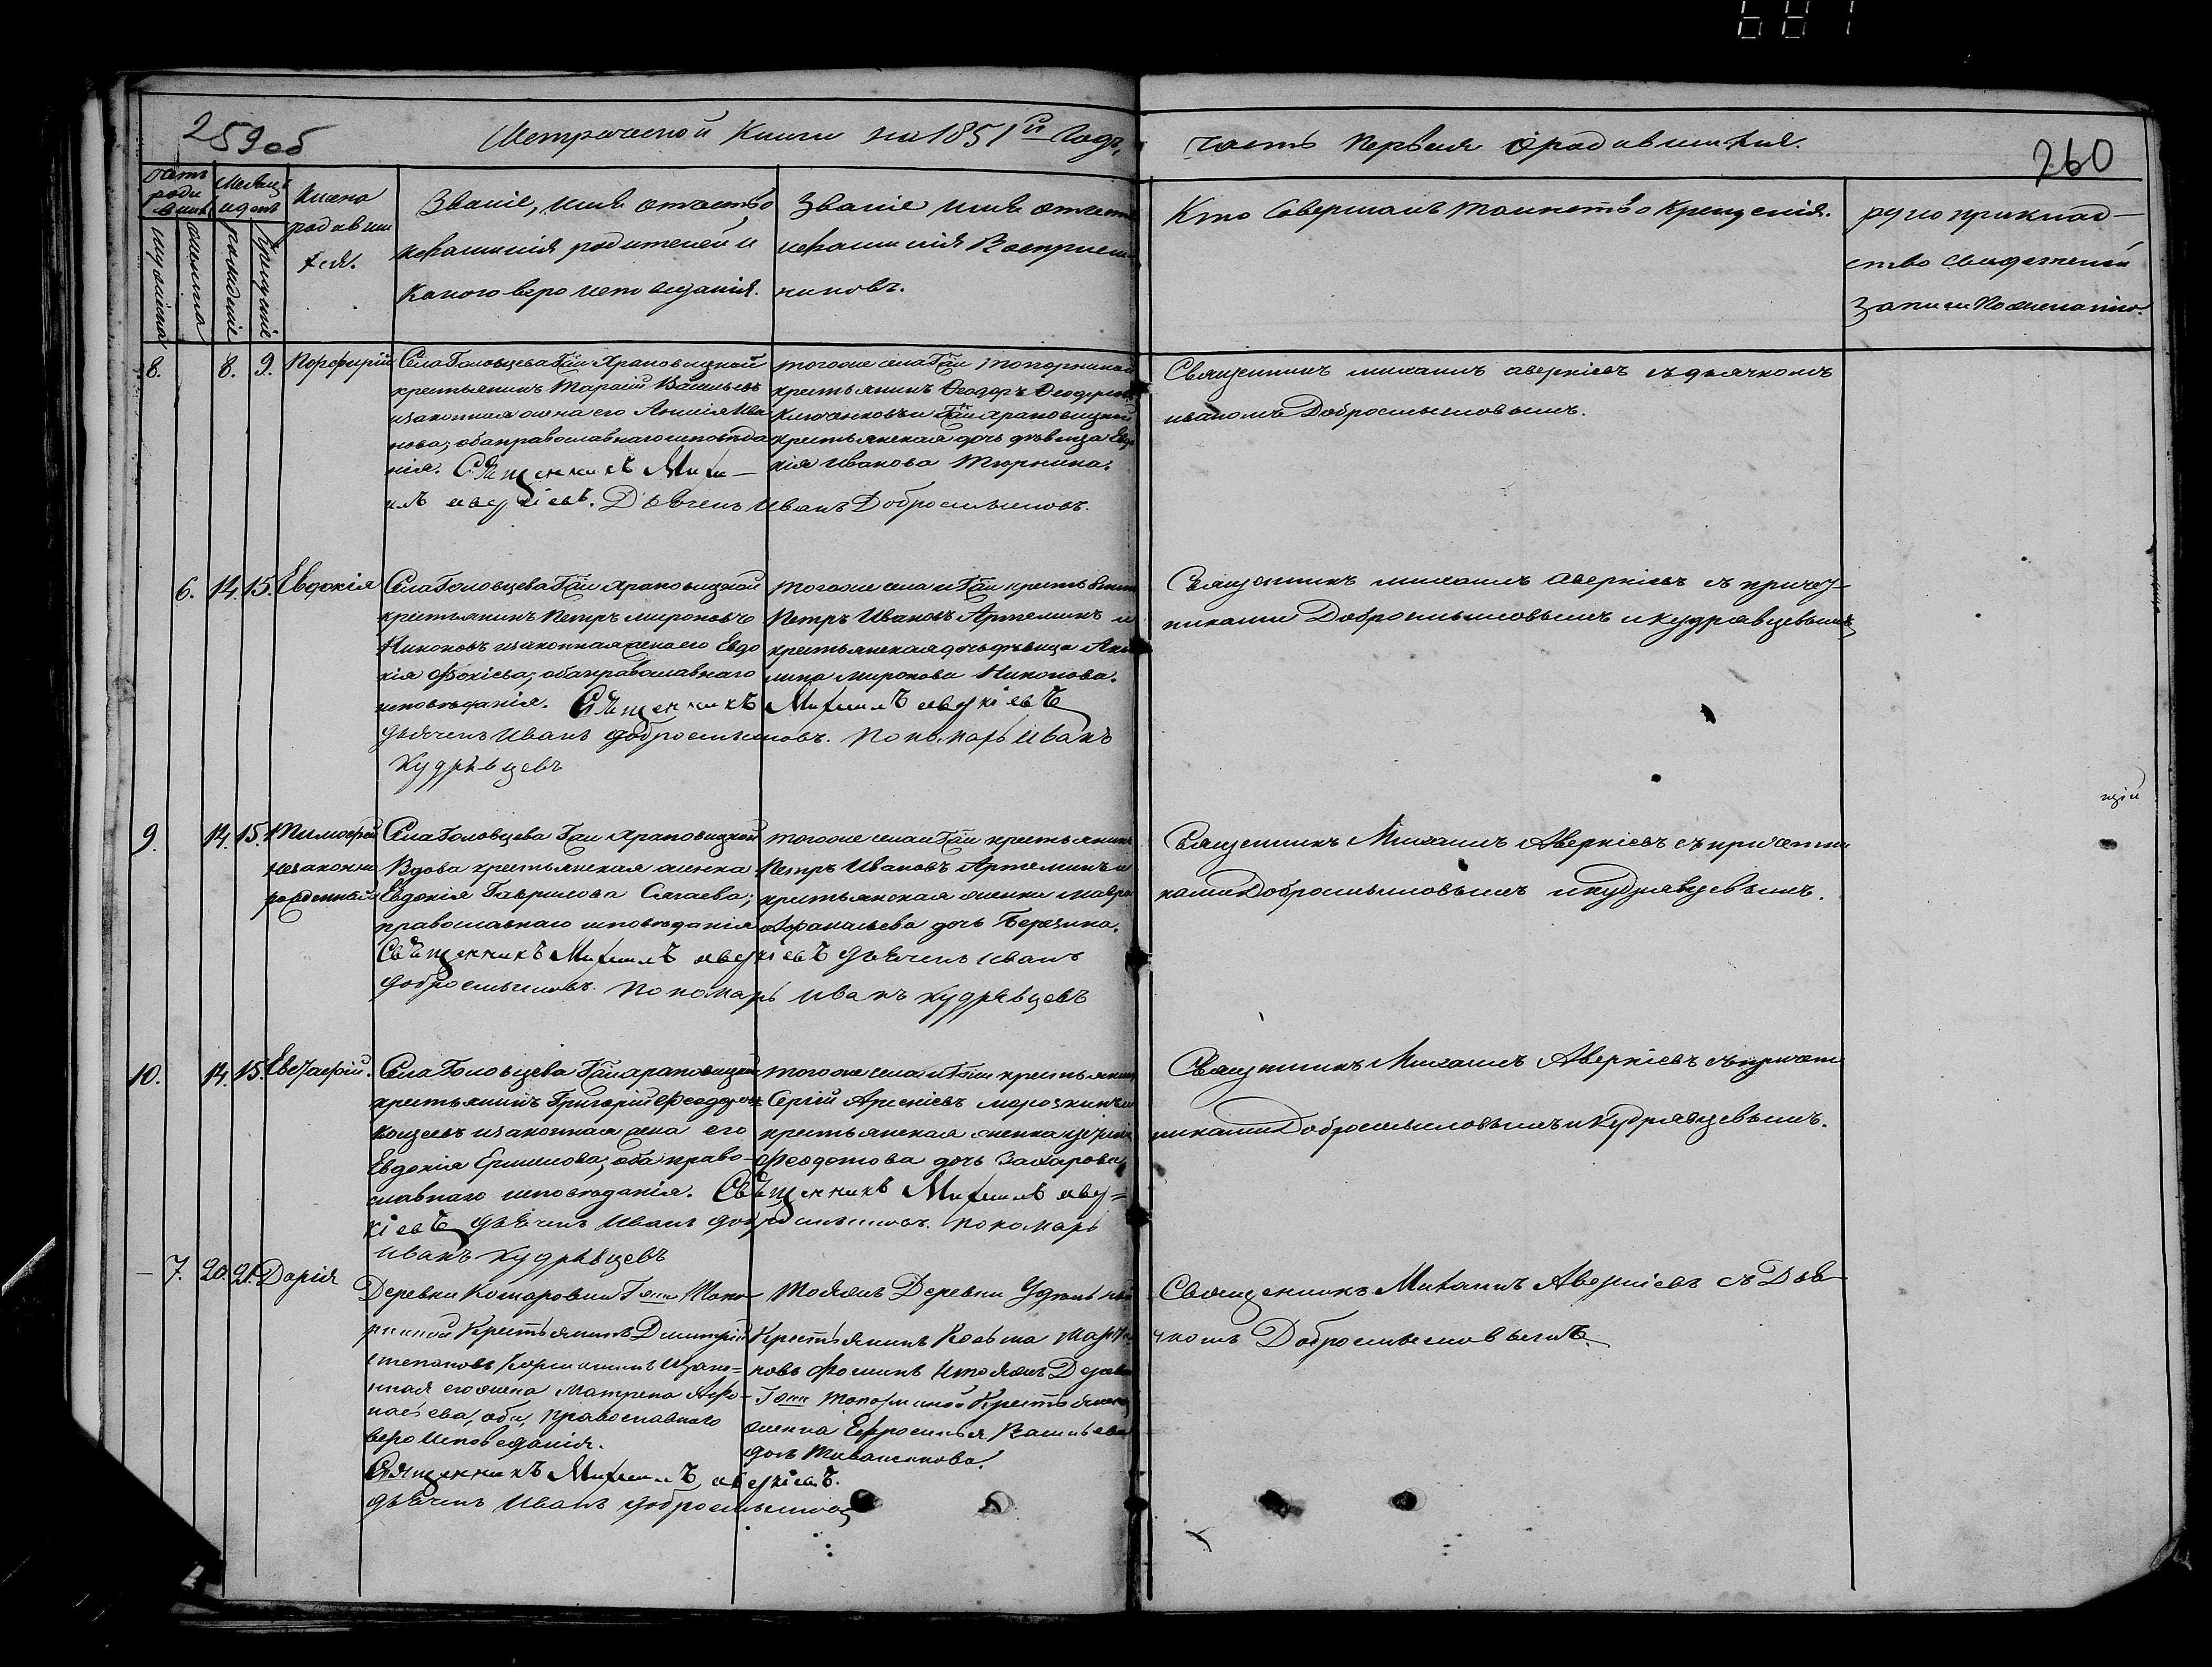 681
259об
Метрической Книги на 1851й Годъ,
часть Первая о родившихся.
260
Счетъ родившихся
мужеска
женска
Месяцъ и день
рожденіе
крещеніе
Имена
родивши
хся.
Званіе, имя отчество
и фамилія родителей и
Какого вероисповеданія.
Званіе имя отчест
и фамилія Воспріем
никовъ.
Кто Совершалъ таинство Крещенія.
рукоприклад—
ство свидетелей
записи по желанію.
8. 8. 9. Порфирій
Села Головцева Гжи Храповицкой
крестьянинъ Тарасій Васильевъ
и законная жена его Анисія Ива
нова; оба православнаго исповѣда
нія. Священникъ Миха—
илъ аверкіевъ. Дьячекъ Иванъ Добросмысловъ.
тогоже села Гжи
крестьянинъ Феодоръ Феодоровъ
и Гжи Храповицкой
крестьянская дочь дѣвица Евдо
кія Иванова Тюрнина.
Священникъ михаилъ аверкіевъ съ дьячкомъ
иваномъ Добросмысловымъ.
6. 14. 15. Евдокія
Села Головцева Гжи Храповицкой
крестьянинъ Петръ Мироновъ
Никоновъ и законная жена его Евдо
кія Фокіева; оба православнаго
исповѣданія. Священникъ Михаилъ аверкіевъ
дьячекъ Иванъ добросмысловъ. пономарь Иванъ
Кудрявцевъ
тогоже села и Гжи крестьянинъ
Петръ Ивановъ Артеминъ и
крестьянская дочь дѣвица Аку
лина Миронова Никонова.
Священникъ михаилъ аверкіевъ съ причет—
никами Добросмысловымъ и Кудрявцевымъ
9. 14. 15. Тимофей
незаконно
рожденный
Села Головцева Гжи Храповицкой
Вдова крестьянская женка
Евдокія Гаврилова;
православнаго исповѣданія
Священникъ Михаилъ аверкіевъ дьячекъ Иванъ
добросмысловъ. пономарь иванъ кудрявцевъ
тогоже села и Гжи крестьянинъ
Петръ Ивановъ Артеминъ и
крестьянская женка Мавра
Афанасьева дочь Березина.
Священникъ Михаилъ Аверкіевъ съ причетни
ками Добросмысловымъ и кудрявцевымъ.
10. 14. 15. Евстафій.
Села Головцева Гжи Храповицкой
крестьянинъ Григорій Феодоровъ
и законная жена его
Евдокія Ермилова; оба право—
славнаго исповѣданія. Священникъ Михаилъ авер=
кіевъ дьячекъ Иванъ добросмысловъ. пономарь
иванъ кудрявцевъ
тогоже села и Гжи крестьянинъ
Сергій Арсеніевъ и
крестьянская женка
Феодотова дочь Захарова.
Священникъ Михаилъ Аверкіевъ съ причет
никами Добросмысловымъ и Кудрявцевымъ.
— 7. 20. 21. Дарія
Деревни Комаровки Гжи Топо—
рниной Крестьянинъ Димитрій
Степановъ и зако=
нная его жена Матрена Афа—
насьева, оба, православнаго
вероисповеданія.
Священникъ Михаилъ аверкіевъ.
дьячекъ Иванъ добросмысловъ
Тояжъ Деревни
Крестьянинъ Косьма
новъ Фоминъ и тояжъ Деревни
Гжи Топорниной Крестьянская
женка Ефросинья Васильева
дочь
Священникъ Михаилъ Аверкіевъ съ Дья—
чкомъ Добросмысловымъ.